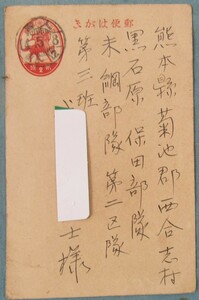 郵便はがき
熊本縣菊池郡西合志村
黒石原 保田部隊
未綱部隊第二区隊
第三班
士様